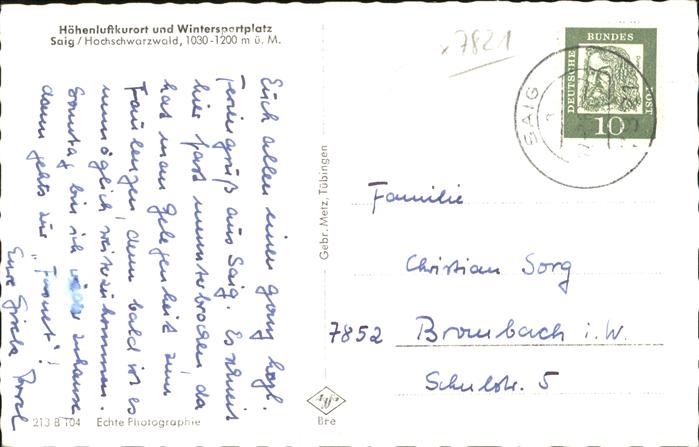 Höhenluftkurort und Wintersportplatz
Saig / Hochschwarzwald, 1030-1200 m ü. M.
Euch allen einen ganz hzgl.
Feriengruß aus Saig. Es schneit
hier fast ununterbrochen, da
hat man Gelegenheit zum
Faulenzen, denn bald ist es
unmöglich weiterzukommen.
Sonntag bin ich wieder zuhause
dann gehts zur „Fasnet"!
Eure Gisela
213 B 104 Echte Photographie
Gebr. Metz, Tübingen
Bre
7821
DEUTSCHE BUNDESPOST
10
SAIG
Familie
Christian Sorg
7852 Brombach i. W.
Schulstr. 5